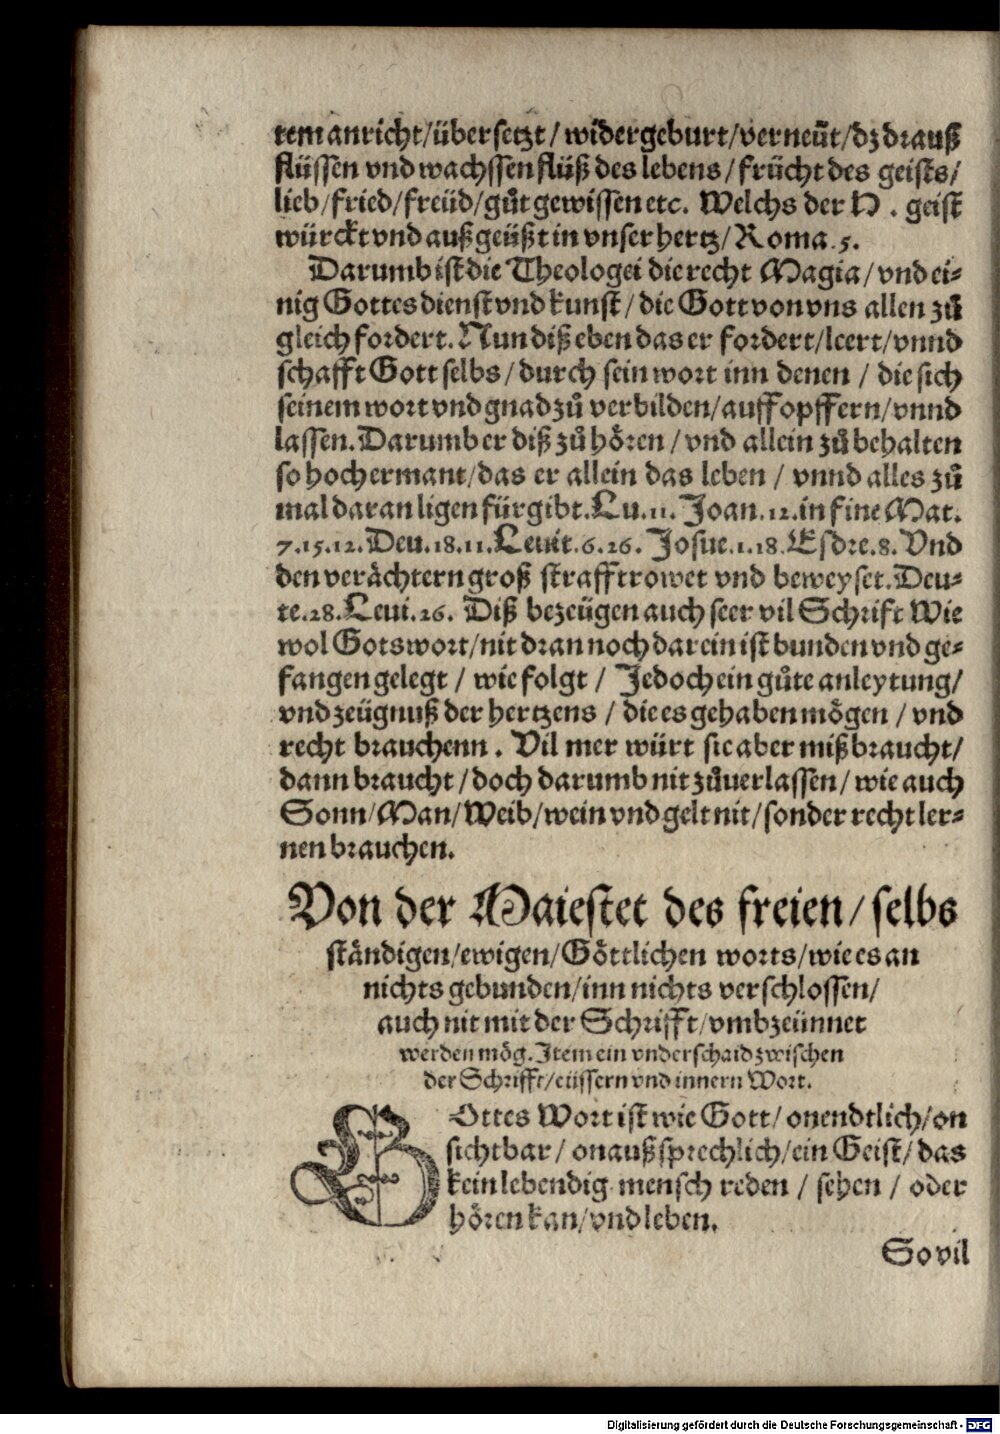 tem anricht/übersetzt/widergeburt/verneüt/dz drauß
flüssen vnd wachssen flüß des lebens/frücht des geists/
lieb/fried/freüd/gůt gewissen etc. Welchs der H. geist
würckt vnd außgeüßt in vnser hertz/Roma.5.
Darumb ist die Theologei die recht Magia/vnd ei-
nig Gottesdienst vnd kunst/die Gott von vns allen zů
gleich fordert. Nun diß eben das er fordert/leert/vnnd
schafft Gott selbs/durch sein wort inn denen/die sich
seinem wort vnd gnad zů verbilden/auffopffern/vnnd
lassen. Darumb er diß zů hören/vnd allein zů behalten
so hoch ermant/das er allein das leben/vnnd alles zů
mal daran ligen fürgibt. Lu.11. Joan.12.in fine Mat.
7.15.12. Deu.18.11. Leuit.6.26. Josue.1.18. Esdre.8. Vnd
den verächtern groß strafft rowet vnd beweyset. Deu-
te.28. Leui.26. Diß bezeügen auch seer vil Schrift Wie
wol Gots wort/nit dran noch darein ist bunden vnd ge-
fangen gelegt/wie folgt/Jedoch ein gůte anleytung/
vnd zeügnuß der hertzens/die es gehaben mögen/vnd
recht brauchenn. Vil mer würt sie aber mißbraucht/
dann braucht/doch darumb nit zůuerlassen/wie auch
Sonn/Man/Weib/wein vnd gelt nit/sonder recht ler-
nen brauchen.
Von der Maiestet des freien/selbs
ständigen/ewigen/Göttlichen worts/wie es an
nichts gebunden/inn nichts verschlossen/
auch nit mit der Schrifft/vmbzeünnet
werden mög. Item ein vnderschaid zwischen
der Schrifft/eüssern vnd innern Wort.
GOttes Wort ist wie Gott/onendtlich/on
sichtbar/onaußsprechlich/ein Geist/das
kein lebendig mensch reden/sehen/oder
hören kan/vnd leben.
So vil
Digitalisierung gefördert durch die Deutsche Forschungsgemeinschaft - DFG